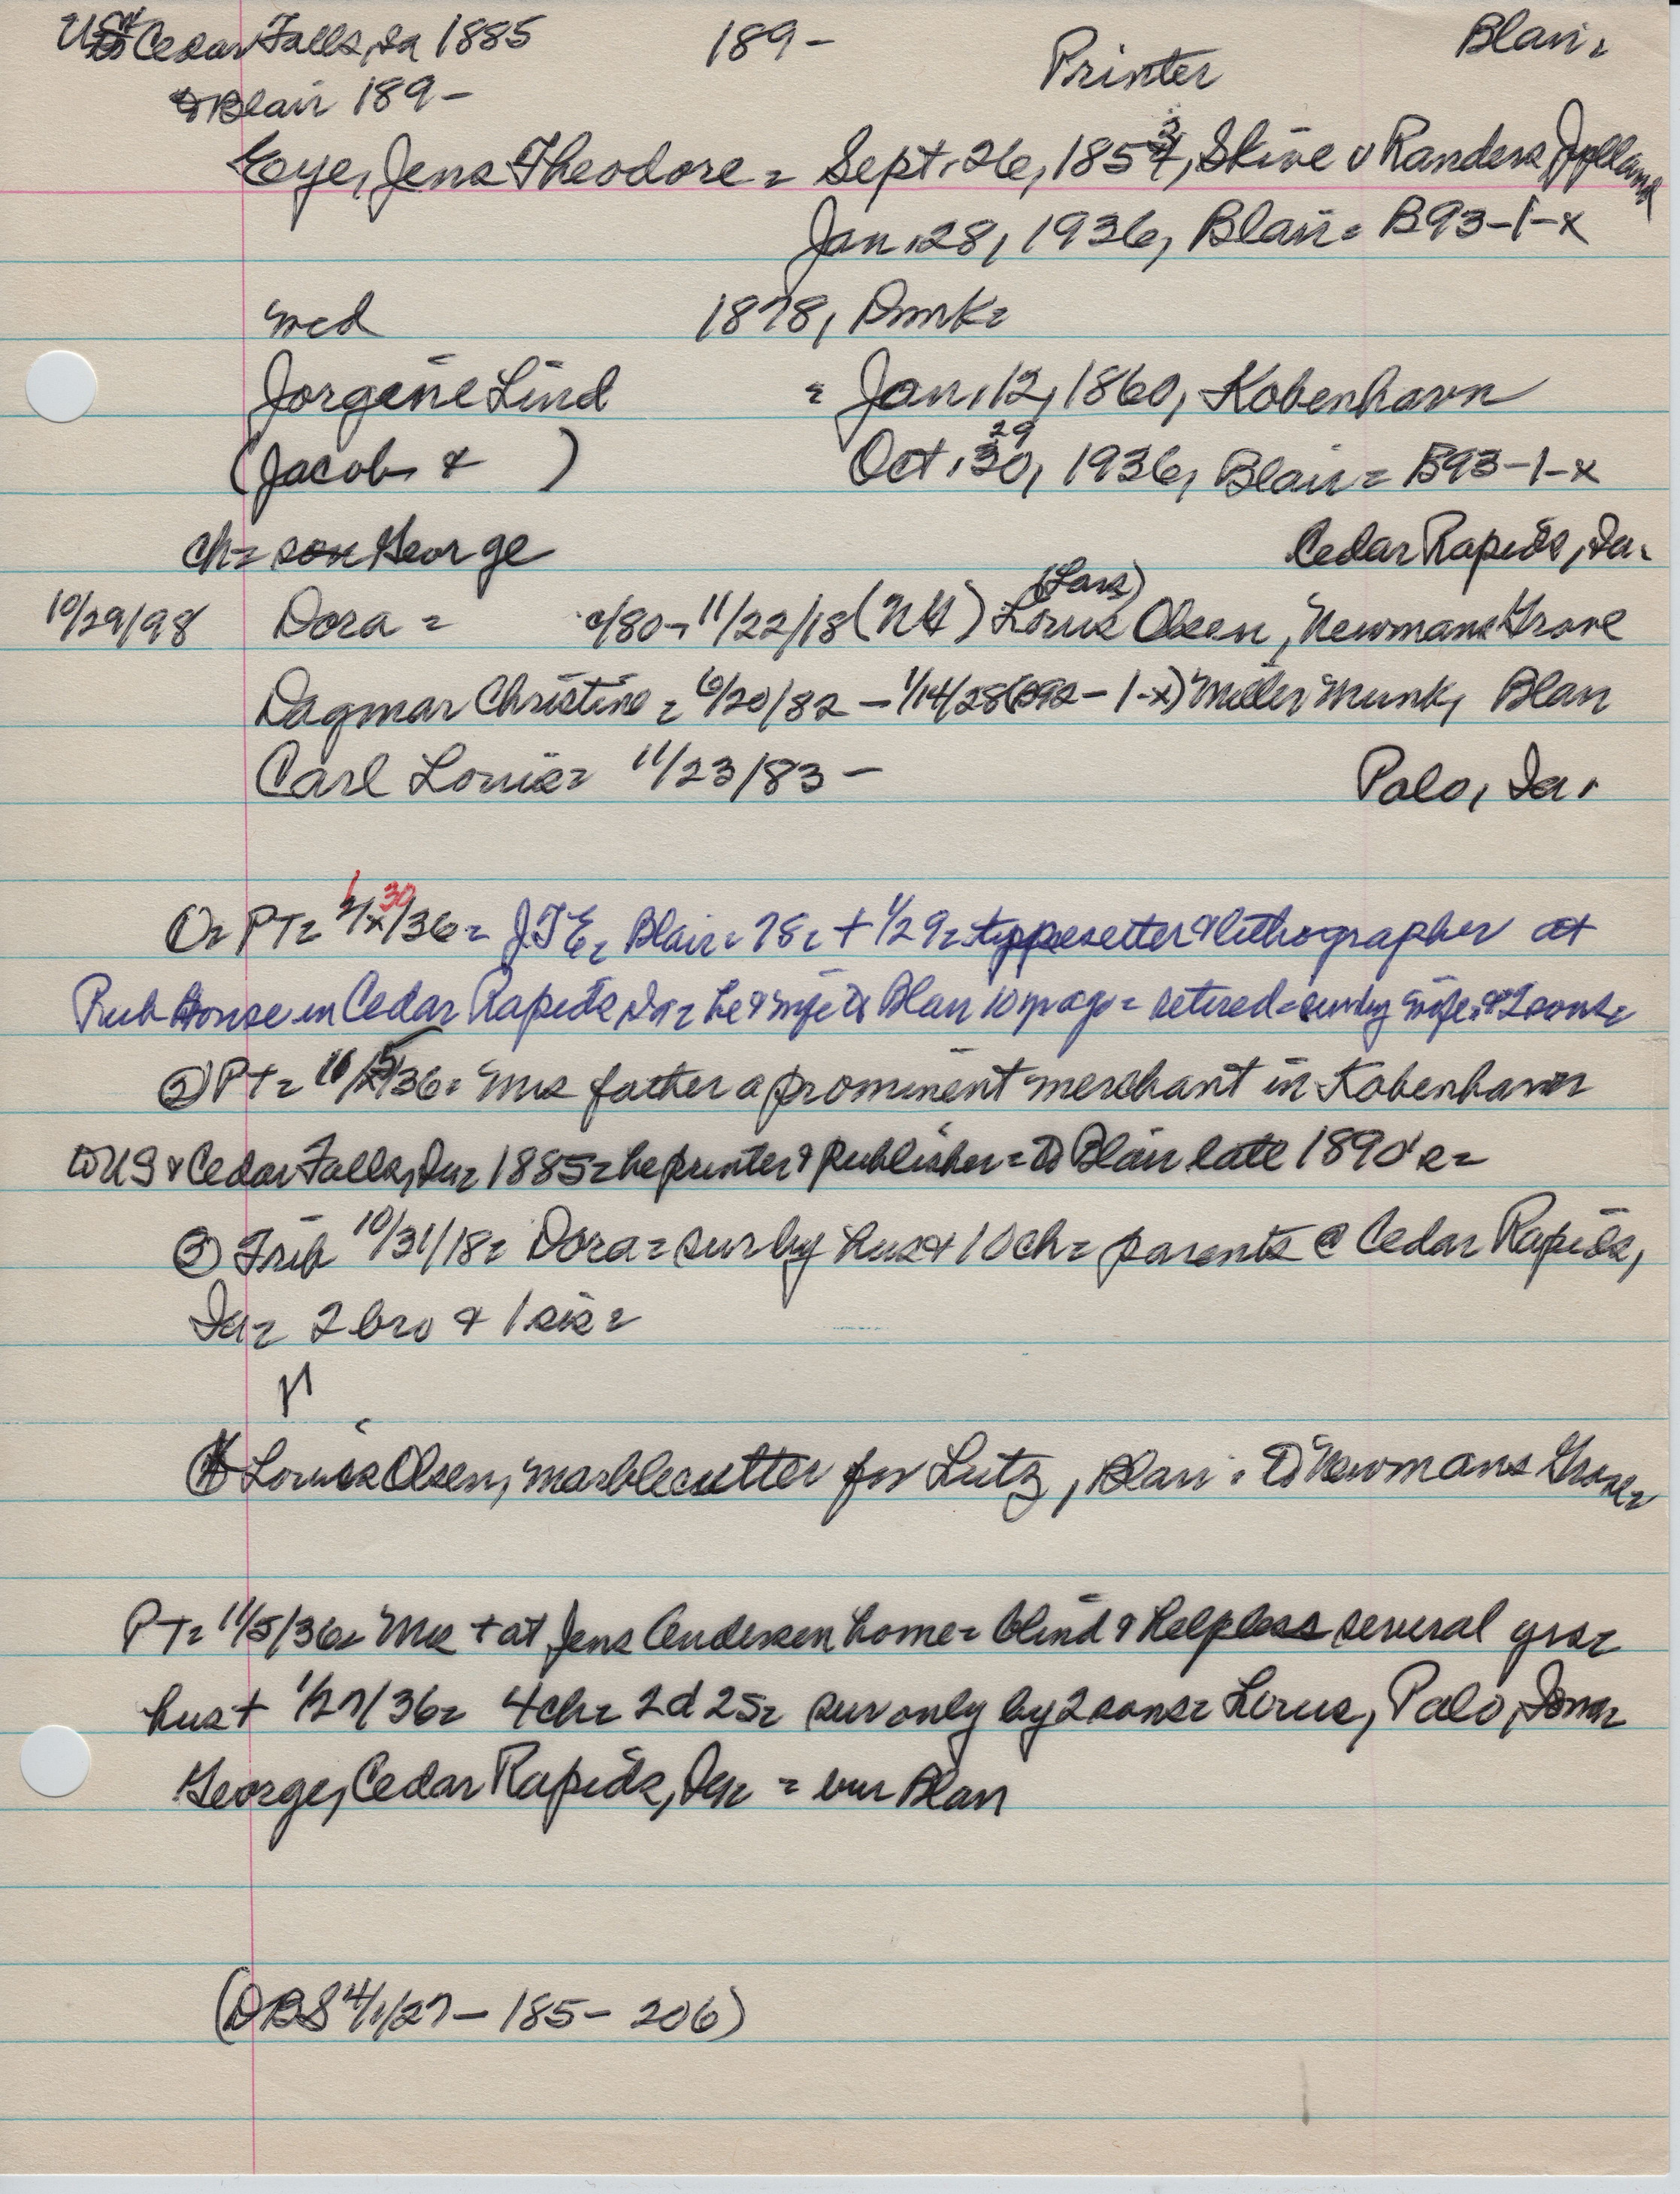 US & Cedar Falls, Ia 1885 189- Printer Blair=
& Blair 189-
Eye, Jens Theodore = Sept. 26, 1853, Skive v Randers, Jylland
Jan. 28, 1936, Blair = B93-1-x
med 1878, Dmk=
Jorgine Lind = Jan. 12, 1860, Kobenhavn
(Jacob & ) Oct. 29, 1936, Blair = B93-1-x
ch= George Cedar Rapids, Ia.
10/29/98 Dora = /80- 11/22/18 (NG) Louis (Lars) Olsen, Newmans Grove
Dagmar Christine = 6/20/82 - 1/14/28 (B92-1-x) Miller Munk, Blair
Carl Louis= 11/23/83 - Palo, Ia.
O= PT= 1/30/36= JTE= Blair= 78= + 1/29= typesetter & lithographer at
Pub House in Cedar Rapids Ia= he & wife to Blair 10 yr ago= retired= sur by wife & 2 sons=
② PT= 11/5/36= Mrs father a prominent merchant in Kobenhavn
to US & Cedar Falls, Ia= 1885= he printer & publisher= to Blair late 1890's=
③ Trib 10/31/18= Dora= sur by hus & 10 ch= parents @ Cedar Rapids,
Ia= 2 bro & 1 sis=
Louis Olsen, marblecutter for Lutz, Blair= to Newmans Grove=
PT= 11/5/36= Mrs + at Jens Andersen home= blind & helpless several yrs=
hus + 1/27/36= 4 ch= 2d 2s= sur only by 2 sons= Louis, Palo, Iowa
George, Cedar Rapids, Ia= = bur Blair
(DBS 4/1/27- 185- 206)